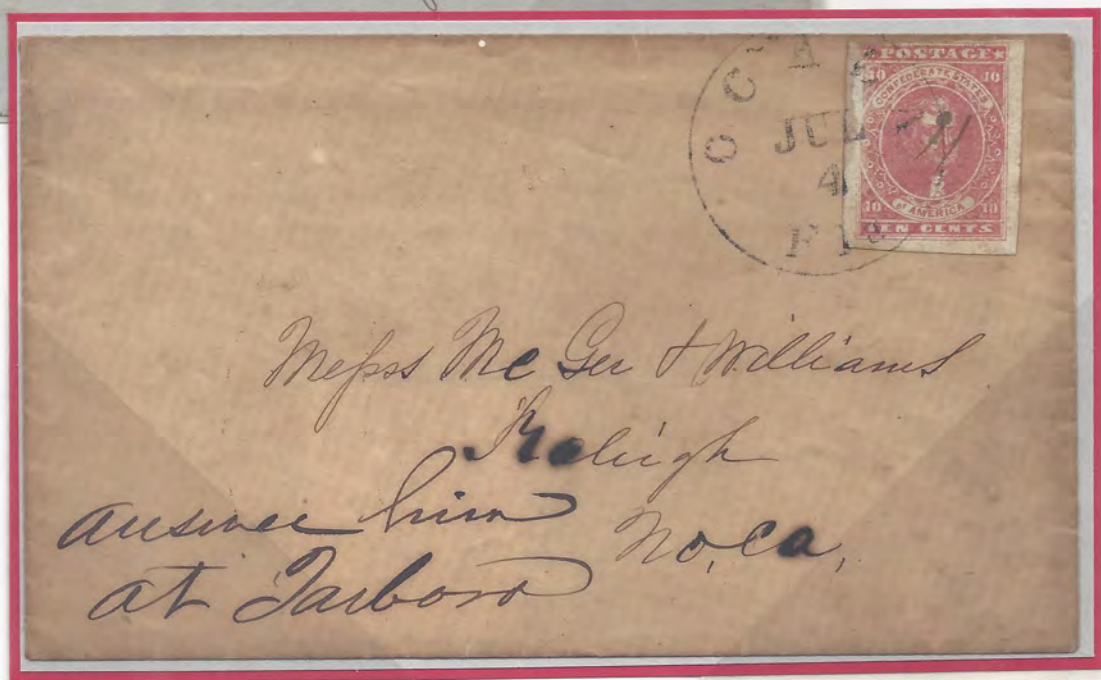 POSTAGE
10 10
CONFEDERATE STATES
of AMERICA
10 10
TEN CENTS
JUL
4
Messrs Mc Gee & Williams
Raleigh
No, Ca,
answer him
at Tarboro